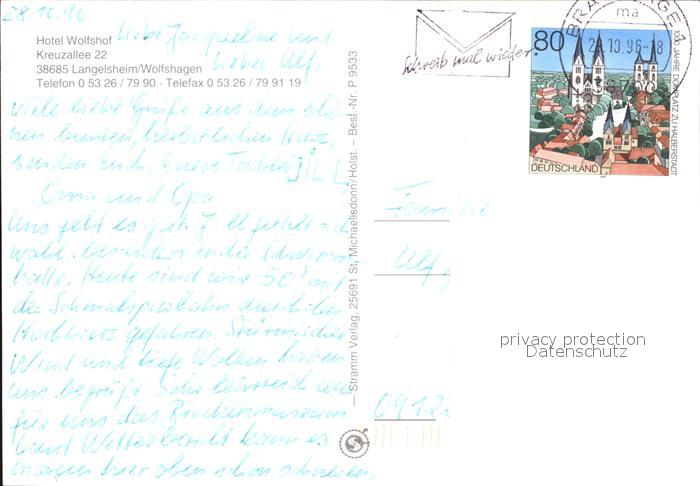 28.10.96
Hotel Wolfshof
Kreuzallee 22
38685 Langelsheim/Wolfshagen
Telefon 0 53 26 / 79 90 · Telefax 0 53 26 / 79 91 19
Liebe Jacqueline und
lieber Ulf,
viele liebe Grüße aus dem schö-
nen bunten, herbstlichen Harz,
senden Euch, Eurere Tochter JILL,
Oma und Opa.
Uns geht es gut. Jill fühlt sich
wohl. besonders in der Schwimm
halle. Heute sind wir 50' mit
der Schmalspurbahn durch den
Hochharz gefahren. Stürmischer
Wind und tiefe Wolken haben
uns begrüßt. Sehr lehrreich war
für uns das Brockenmuseum
Laut Wetterbericht kann es
morgen hier oben schon schneien.
Stramm Verlag, 25691 St. Michaelisdonn/Holst. – Best.-Nr. P 9533
Schreib mal wieder
BRA
ma
28.10.96-18
80
DEUTSCHLAND
1000 JAHRE DOMPLATZ ZU HALBERSTADT
Familie
Ulf
0912
privacy protection
Datenschutz